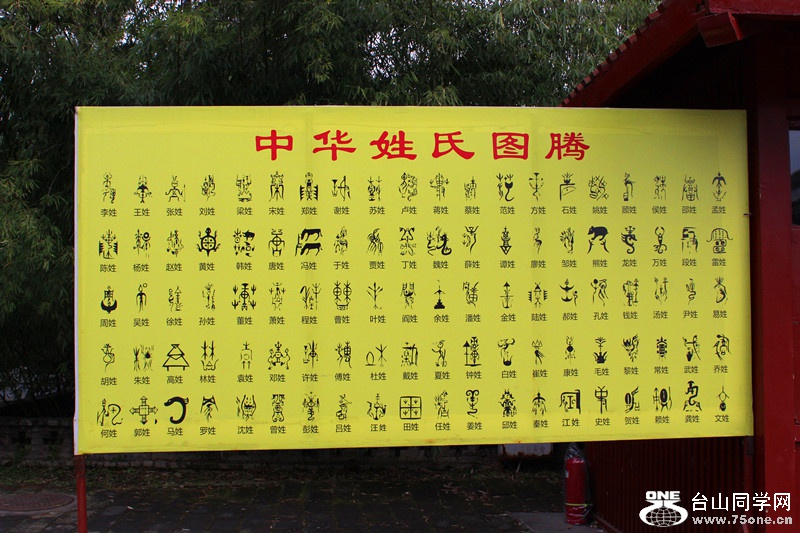 中华姓氏图腾
李姓 王姓 张姓 刘姓 梁姓 宋姓 郑姓 谢姓 苏姓 卢姓 蒋姓 蔡姓 范姓 方姓 石姓 姚姓 顾姓 侯姓 邵姓 孟姓
陈姓 杨姓 赵姓 黄姓 韩姓 唐姓 冯姓 于姓 贾姓 丁姓 魏姓 薛姓 谭姓 廖姓 邹姓 熊姓 龙姓 万姓 段姓 雷姓
周姓 吴姓 徐姓 孙姓 董姓 萧姓 程姓 曹姓 叶姓 阎姓 余姓 潘姓 金姓 陆姓 郝姓 孔姓 钱姓 汤姓 尹姓 易姓
胡姓 朱姓 高姓 林姓 袁姓 邓姓 许姓 傅姓 杜姓 戴姓 夏姓 钟姓 白姓 崔姓 康姓 毛姓 黎姓 常姓 武姓 乔姓
何姓 郭姓 马姓 罗姓 沈姓 曾姓 彭姓 吕姓 汪姓 田姓 任姓 姜姓 邱姓 秦姓 江姓 史姓 贺姓 赖姓 龚姓 文姓
ONE 台山同学网
www.75one.cn